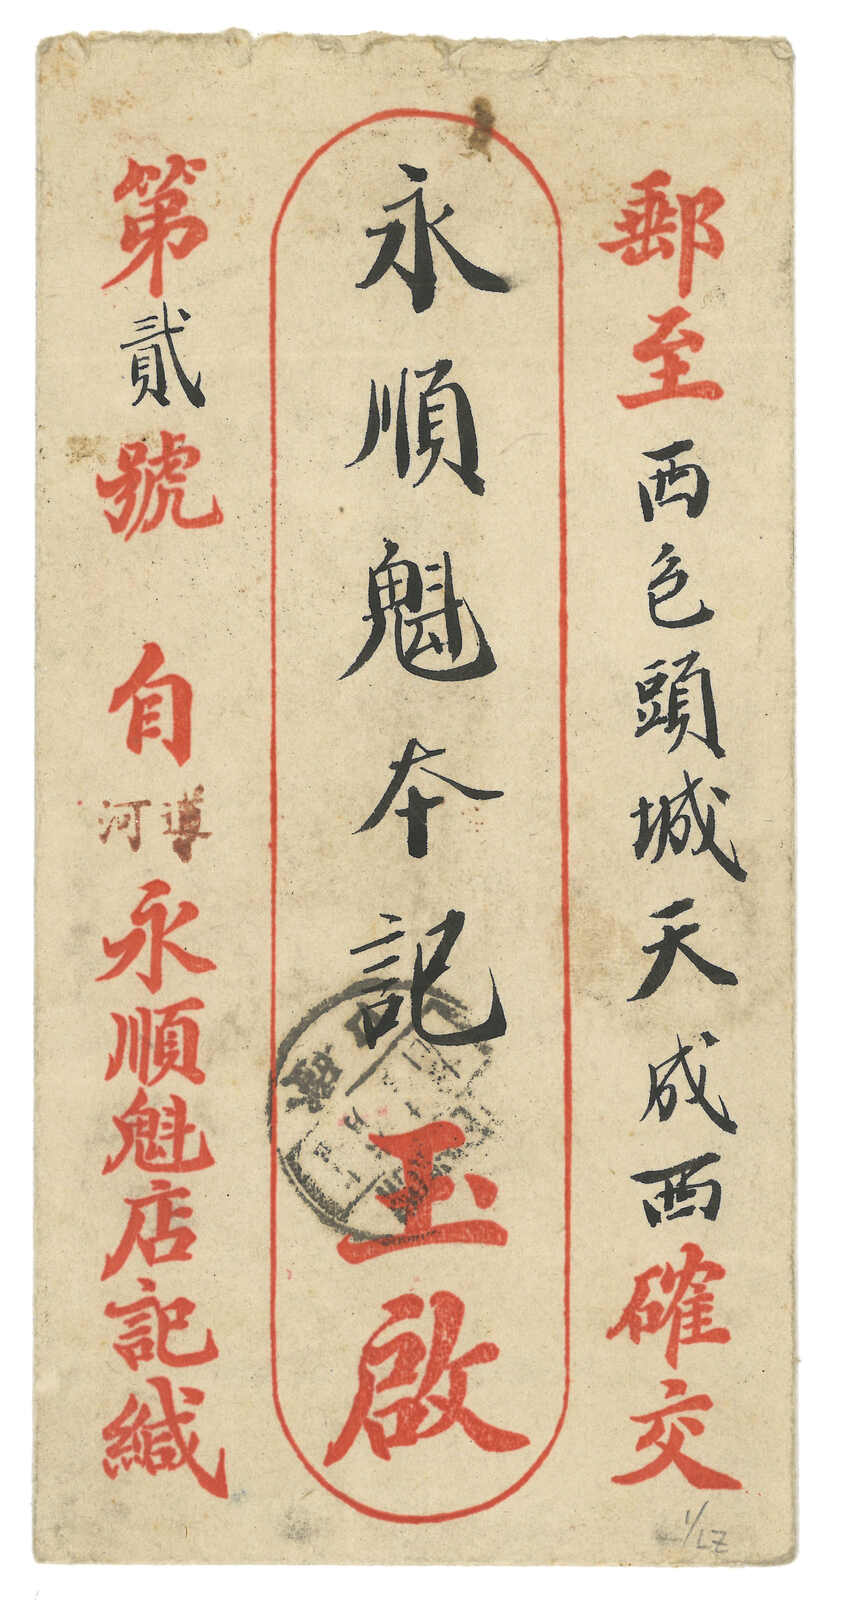 郵至西包頭城天成西確交
永順魁本記玉啟
第貳號 自導河永順魁店記緘
1/LZ